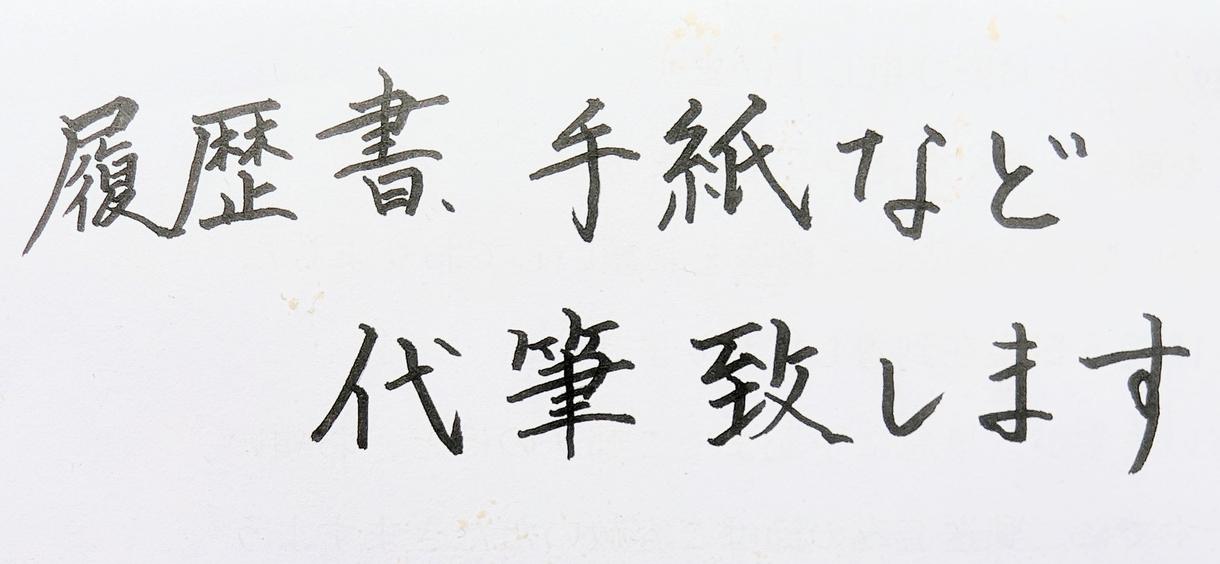 履歴書、手紙など
代筆致します